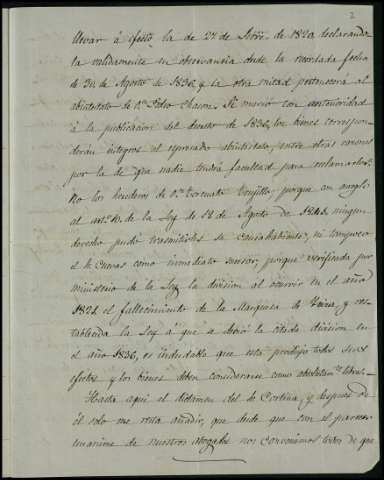 2
llevar á efecto la de 27 de Setre. de 1820, declarando
la validamente en observancia desde la recordada fecha
de 30 de Agosto de 1836, y la otra mitad pertenecerá al
abintestato de Dn. Pedro Chacon. Si murió con anterioridad
á la publicacion del decreto de 1836, los bienes correspon
derán integros al espresado abintestato, entre otras razones
por la de que nadie tendrá facultad para reclamarlos.
No los herederos de Da. Fortunata, porque con arreglo
al articº. de la Ley de 12 de Agosto de 1841, ningun
derecho pudo trasmitirles su contrahabiente, ni tampoco
el Sr. Cuevas como inmediato sucesor, porque verificada por
ministerio de la Ley la division al ocurrir en el año
1821 el fallecimiento de la Marquesa de, y res
tablecida la Ley á que se debió la citada division en
el año 1836, es indudable que esta produjo todos sus
efectos y los bienes deben considerarse como absolutamte. libres.
Hasta aqui el dictámen del Sr. Cortina, y despues de
él solo me resta añadir, que desde que con el parecer
unanime de nuestros abogados nos convenimos todos de que